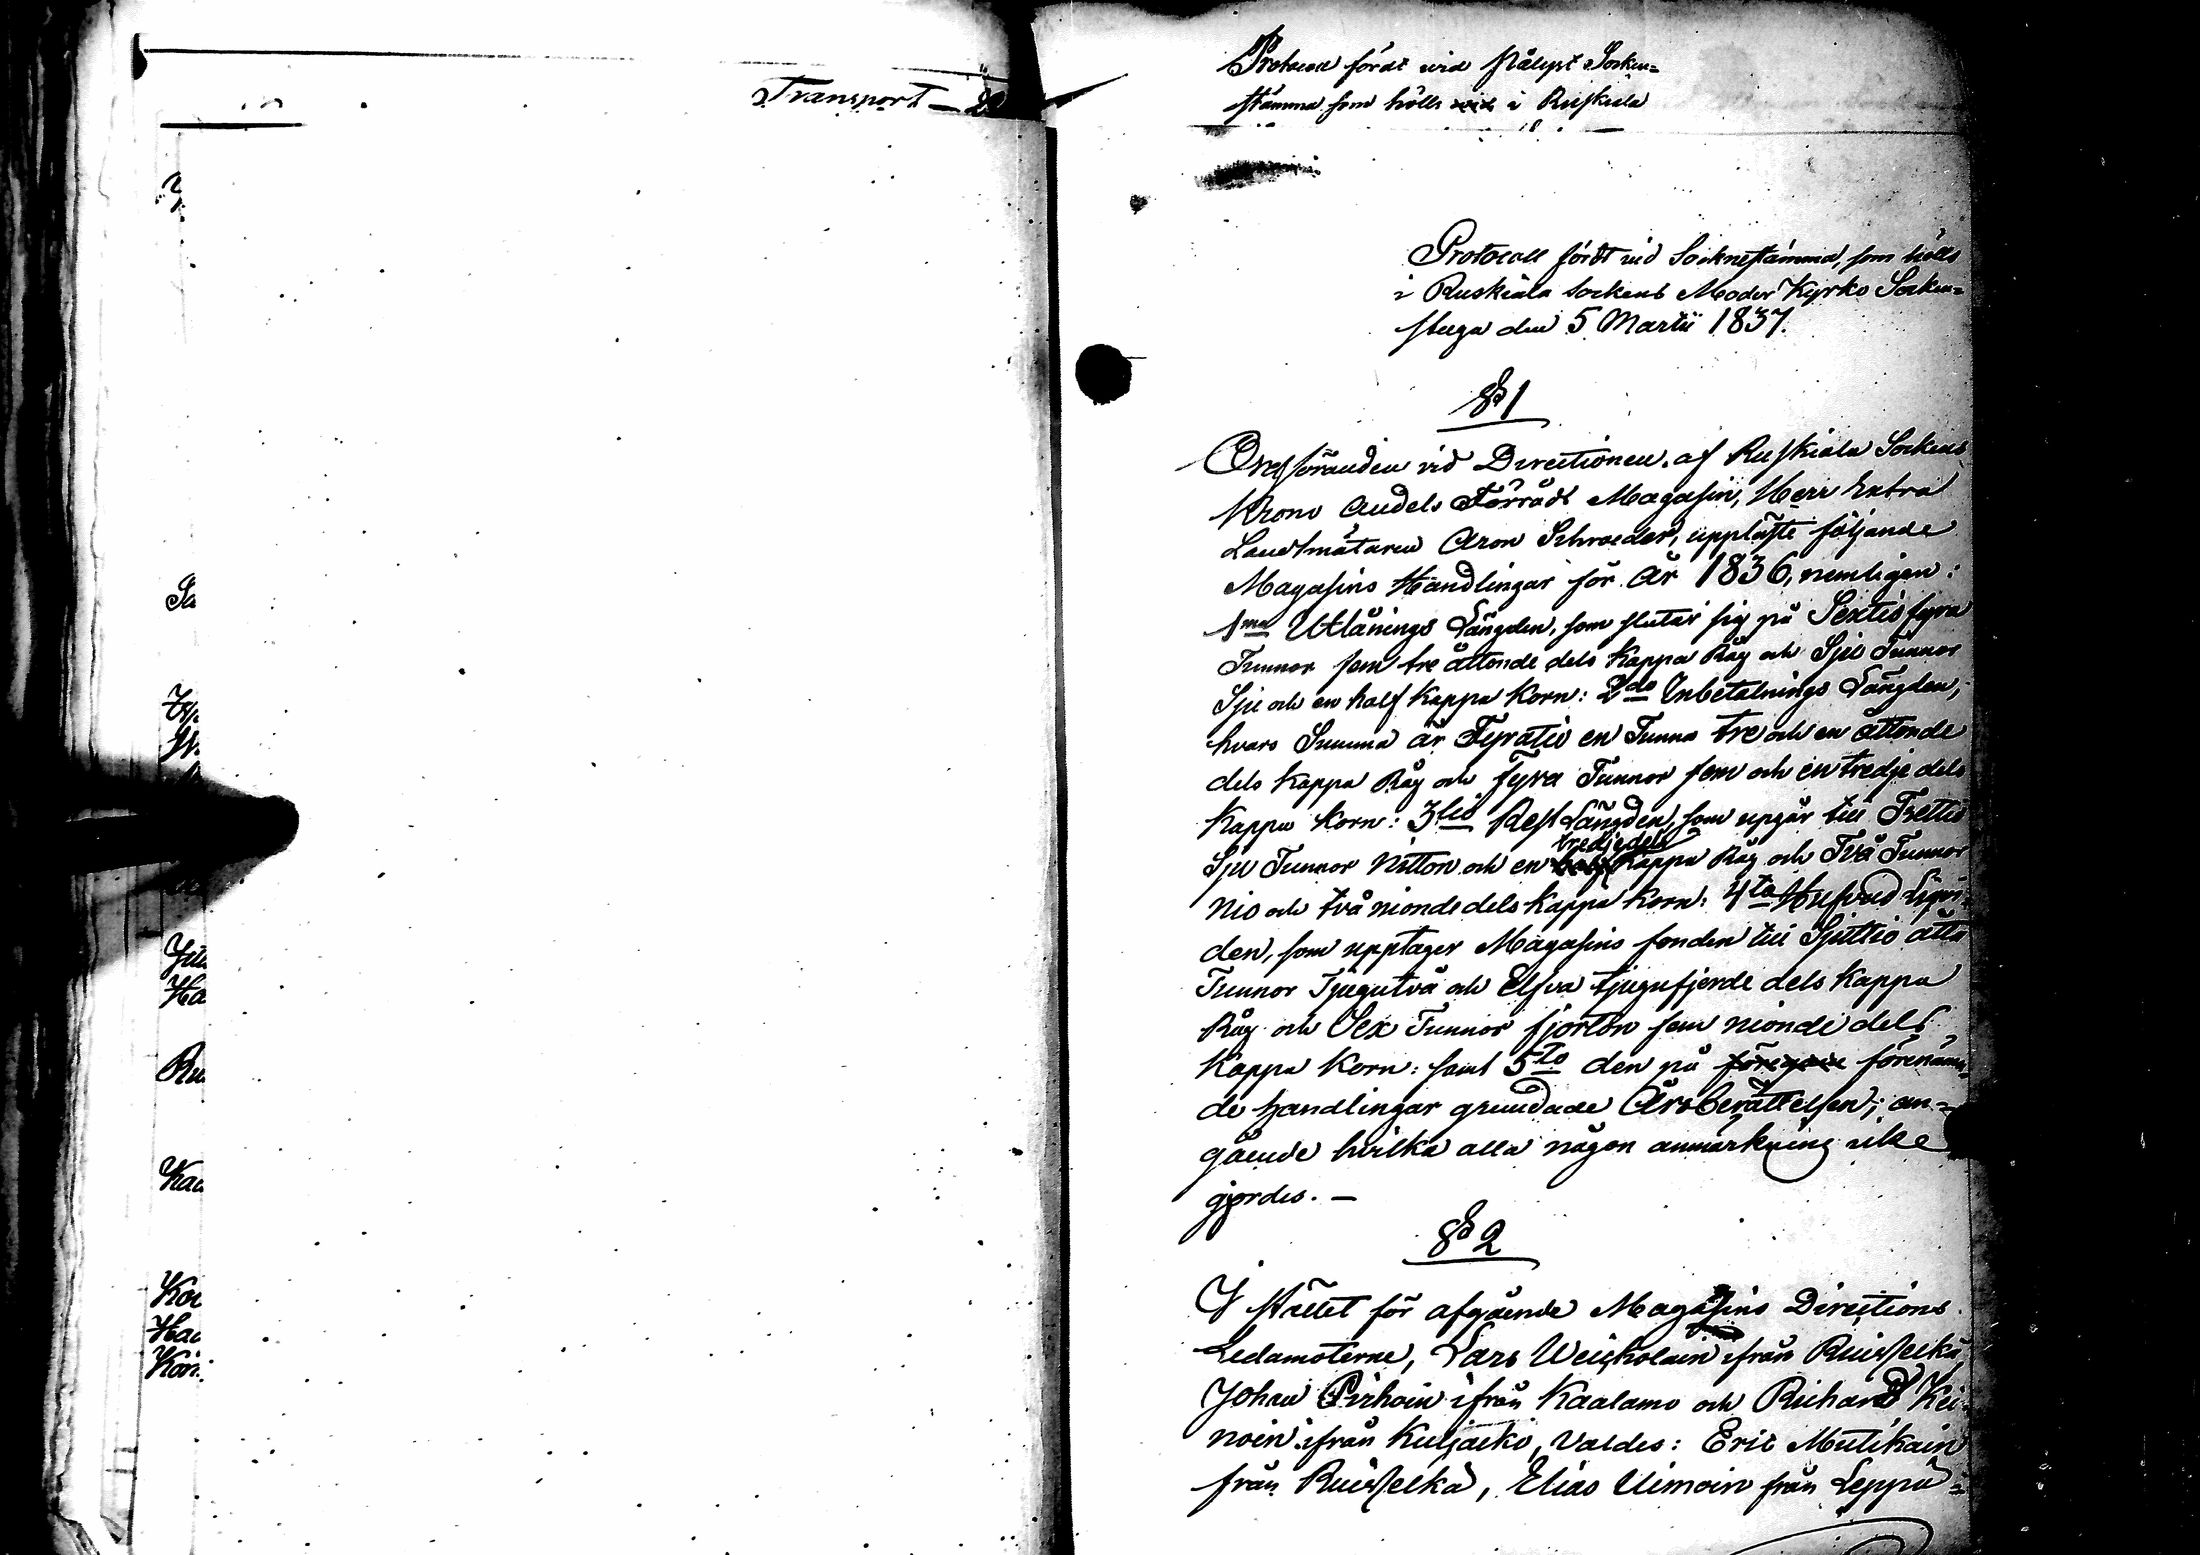 Transport —
Sa
Juu
Ha
Ru
Kau
Kor
Hau
Kon
Protocoll fördt wid pålyst Socken=
stämma som hölls wid i Ruskiala
Protocoll fördt vid Socknestämma, som hölls
i Ruskiala Sockens Moder Kyrko Socken=
stuga den 5 Martii 1837.
§ 1
Ordföranden vid Directionen af Ruskiala Sockens
Krono Andels Förråds Magasin, Herr Extra
Landtmätaren Aron Schroeder, uppläste följande
Magasins Handlingar för År 1836, nemligen:
1mo Utlånings Längden, som slutar sig på Sextio fyra
Tunnor fem tre åttonde dels Kappa Råg och Sju Tunnor
Sju och en half Kappa Korn: 2do Inbetalnings Längden,
hvars Summa är Fyratio en Tunna tre och en åttonde
dels Kappa Råg och fyra Tunnor fem och en tredje dels
Kappa Korn: 3tio Rest Längden, som upgår till Trettio
Sju Tunnor Nitton och en half tredjedels Kappa Råg och Två Tunnor
Nio och två niondedels Kappa Korn: 4to Hufvud Läng-
den, som upptager Magasins fonden till Sjuttio åtta
Tunnor Tjugutvå och Elfva tjugufjerde dels Kappa
Råg och Sex Tunnor fjorton fem nionde dels
Kappa Korn: samt 5to den på förenäm=
de handlingar grundade Årsberättelsen; an=
gående hvilka alla någon anmärkning icke
gjordes. —
§ 2
I stället för afgående Magasins Directions
Ledamoterne, Lars Weiskolain ifrån Ruisselkä,
Johan Pirhoin ifrån Kaalamo och Richard Kei-
noin ifrån Kuljacko, Valdes: Eric Mutikain
från Ruisselkä, Elias Uimoin från Leppä=